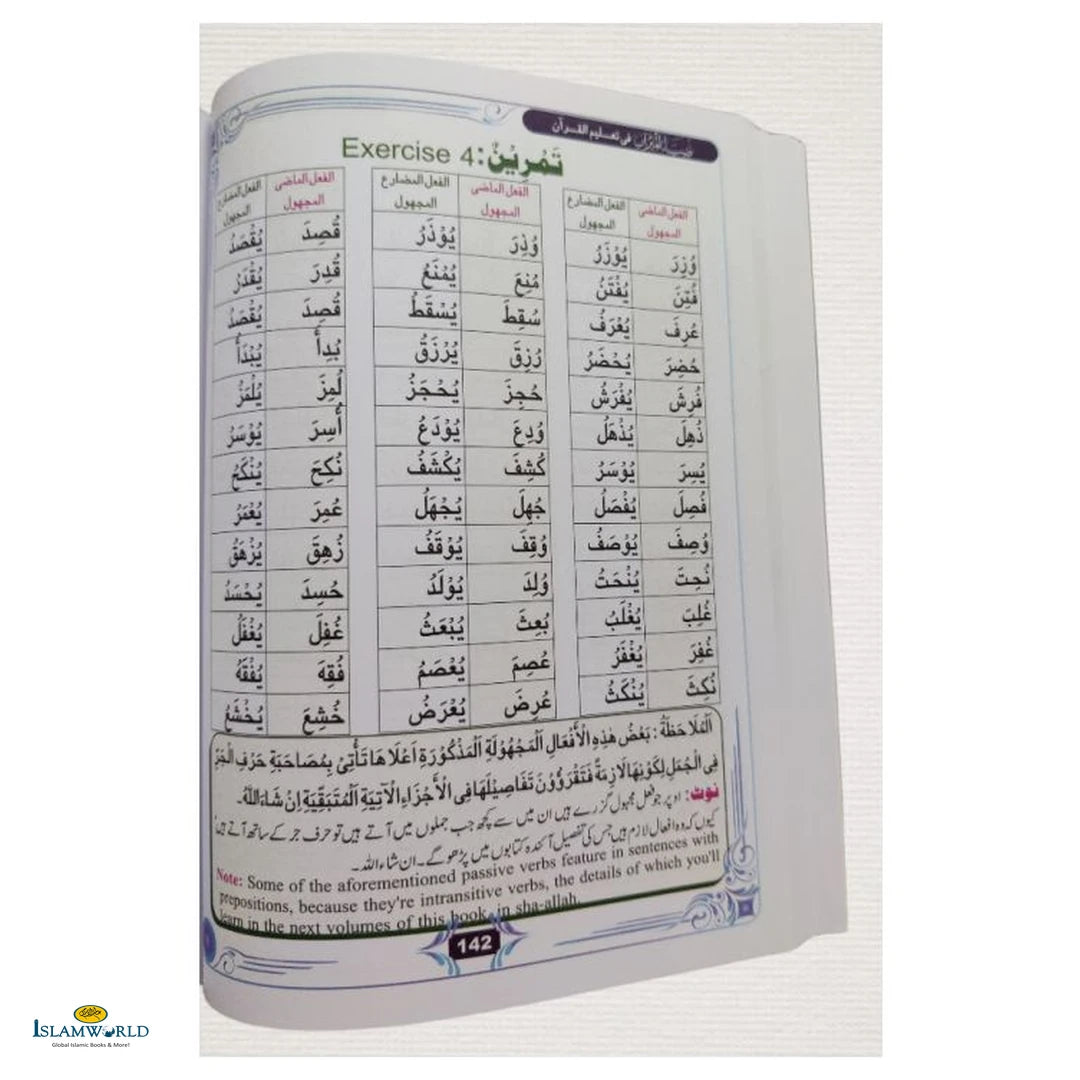 فى تعليم القرآن
تَمْرِيْنٌ: Exercise 4
الفعل الماضى المجهول الفعل المضارع المجهول
وُزِرَ يُوْزَرُ
فُتِنَ يُفْتَنُ
عُرِفَ يُعْرَفُ
حُضِرَ يُحْضَرُ
فُرِشَ يُفْرَشُ
ذُهِلَ يُذْهَلُ
يُسِرَ يُوْسَرُ
فُصِلَ يُفْصَلُ
وُصِفَ يُوْصَفُ
نُحِتَ يُنْحَتُ
غُلِبَ يُغْلَبُ
غُفِرَ يُغْفَرُ
نُكِثَ يُنْكَثُ
الفعل الماضى المجهول الفعل المضارع المجهول
وُذِرَ يُوْذَرُ
مُنِعَ يُمْنَعُ
سُقِطَ يُسْقَطُ
رُزِقَ يُرْزَقُ
حُجِزَ يُحْجَزُ
وُدِعَ يُوْدَعُ
كُشِفَ يُكْشَفُ
جُهِلَ يُجْهَلُ
وُقِفَ يُوْقَفُ
وُلِدَ يُوْلَدُ
بُعِثَ يُبْعَثُ
عُصِمَ يُعْصَمُ
عُرِضَ يُعْرَضُ
الفعل الماضى المجهول الفعل المضارع المجهول
قُصِدَ يُقْصَدُ
قُدِرَ يُقْدَرُ
قُصِدَ يُقْصَدُ
بُدِأَ يُبْدَأُ
لُمِزَ يُلْمَزُ
أُسِرَ يُوْسَرُ
نُكِحَ يُنْكَحُ
عُمِرَ يُعْمَرُ
زُهِقَ يُزْهَقُ
حُسِدَ يُحْسَدُ
غُفِلَ يُغْفَلُ
فُقِهَ يُفْقَهُ
خُشِعَ يُخْشَعُ
اَلْمُلَاحَظَةُ: بَعْضُ هٰذِهِ الْأَفْعَالِ الْمَجْهُولَةِ الْمَذْكُورَةِ اَعْلَاهَا تَأْتِيْ بِمُصَاحَبَةِ حَرْفِ الْجَرِّ
فِى الْجُمَلِ لِكَوْنِهَا لَازِمَةً فَتَقْرَؤُوْنَ تَفَاصِيْلَهَا فِى الْأَجْزَاءِ الْآتِيَةِ الْمُتَبَقِّيَةِ اِنْ شَاءَ اللهُ۔
نوٹ: اوپر جو فعل مجہول گزرے ہیں ان میں سے کچھ جب جملوں میں آتے ہیں تو حرف جر کے ساتھ آتے ہیں
کیوں کہ وہ افعال لازم ہیں جس کی تفصیل آئندہ کتابوں میں پڑھو گے۔ ان شاء اللہ۔
Note: Some of the aforementioned passive verbs feature in sentences with
prepositions, because they're intransitive verbs, the details of which you'll
learn in the next volumes of this book, in sha-allah.
142
ISLAMWORLD
Global Islamic Books & More!